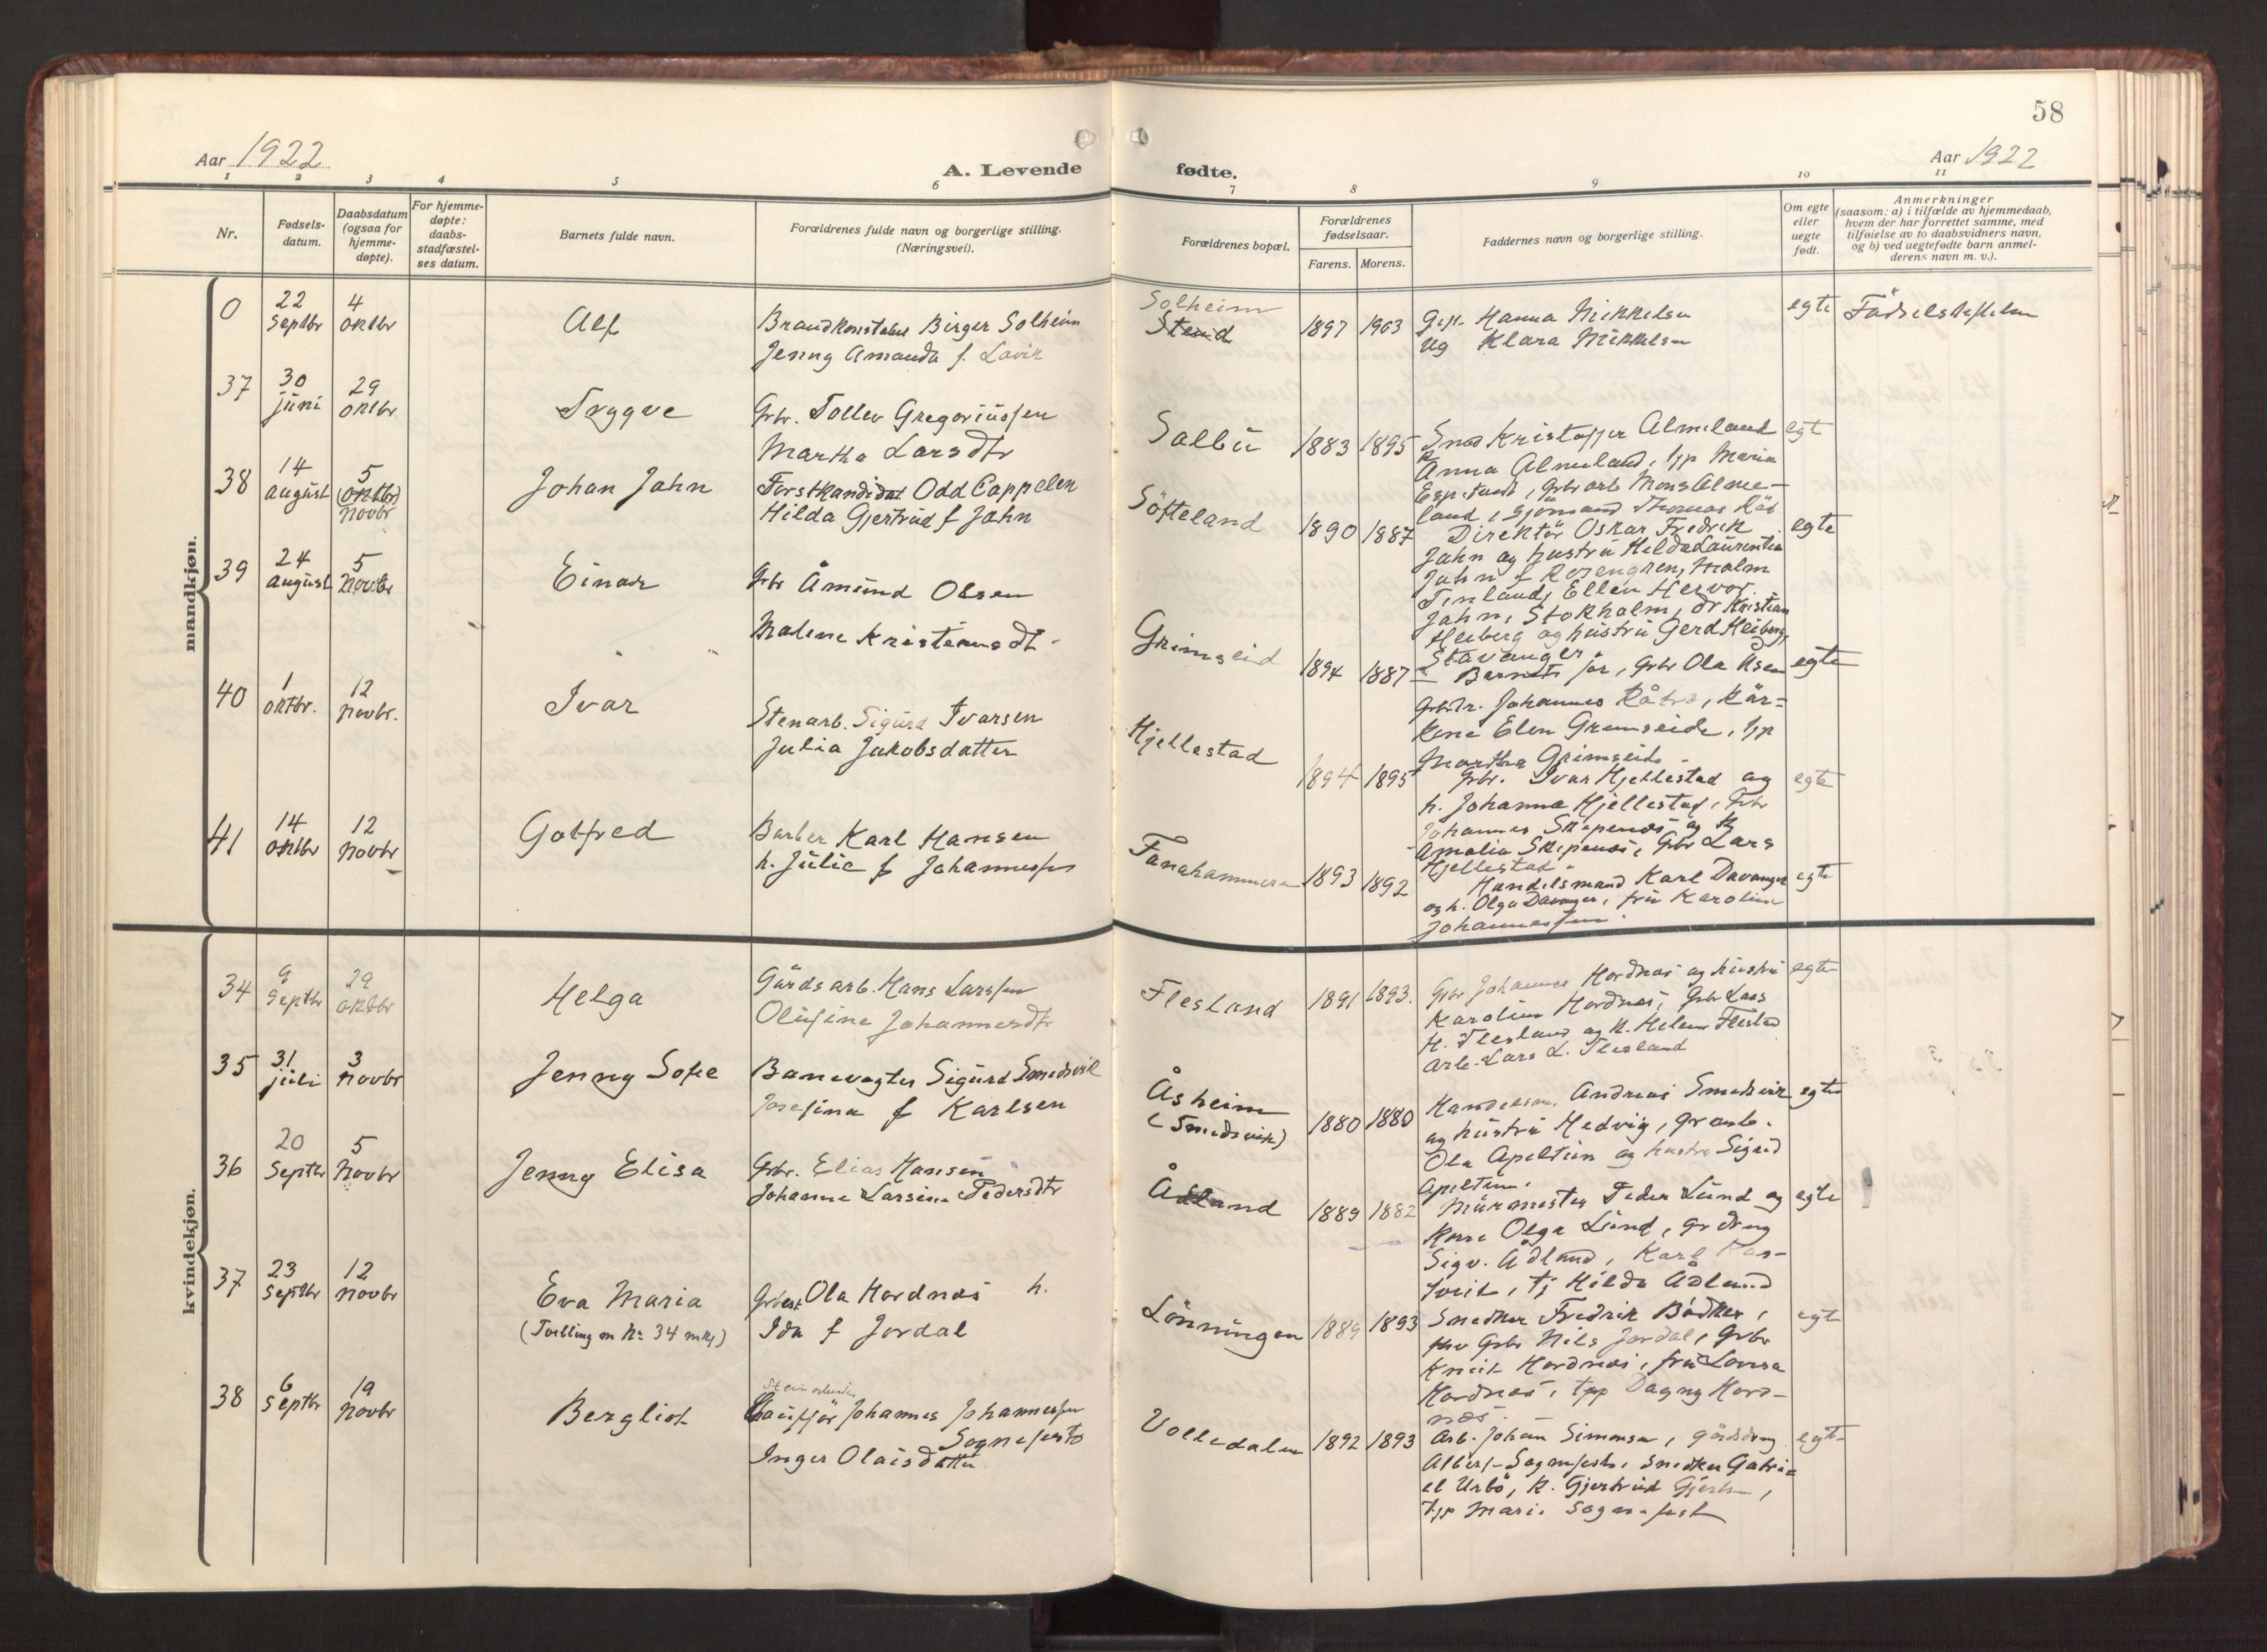 58
Aar 1922
A. Levende
fødte.
Aar 1922
1 2 3 4 5 6 7 8 9 10 11
Nr.
Fødsels-
datum.
Daabsdatum
(ogsaa for
hjemme-
døpte).
For hjemme-
døpte:
daabs-
stadfæstel-
ses datum.
Barnets fulde navn.
Forældrenes fulde navn og borgerlige stilling.
(Næringsvei).
Forældrenes bopæl.
Forældrenes
fødselsaar.
Farens. Morens.
Faddernes navn og borgerlige stilling.
Om egte
eller
uegte
født.
Anmerkninger
(saasom: a) i tilfælde av hjemmedaab,
hvem der har forrettet samme, med
tilføielse av to daabsvidners navn,
og b) ved uegtefødte barn anmel-
derens navn m. v.).
mandkjøn.
0
22
Septbr
4
oktbr
Alf
Brandkonstabel Birger Solheim
Jenny Amanda f.
Solheim
Stend
1897 1903
Hanna Mikkelsen
Klara Mikkelsen
egte
37
30
juni
29
oktbr
Trygve
Grbr. Tollev Gregoriussen
Martha Larsdtr
Salbu
1883 1895
Kristoffer Almeland
Anna Almeland, Maria
Mons Alme-
land, Sjömand Thomas
egt
38
14
august
5
(oktbr)
novbr
Johan Jahn
Forstkandidat Odd Cappelen
Hilda Gjertrud f Jahn
Söfteland
1890 1887
Direktör Oskar Fredrik
Jahn og hustru Hilda Laurentia
Jahn f Rosengren, Malm
Finland, Ellen Hervor
Jahn, Stokholm, dr Kristian
Heiberg og hustru Gerd Heiberg,
Stavanger.
egte
39
24
august
5
Novbr
Einar
Grbr Åmund Olsen
Malene Kristensdt
Grimseid
1894 1887
Barnets far, Grbr Ola Åsen
Johannes
Elen Grimseide,
Martha Grimseide
egte
40
1
oktbr.
12
novbr.
Ivar
Stenarb. Sigurd Ivarsen
Julia Jakobsdatter
Hjellestad
1894 1895
Grbr. Ivar Hjellestad og
h. Johanna Hjellestad, Grbr
Johannes Skepenes og
Amalia Skepenes, Grbr Lars
Hjellestad.
egte
41
14
oktbr
12
Novbr
Gotfred
Barber Karl Hansen
h. Julie f Johannessen
Fanahammeren
1893 1892
Handelsmand Karl Davanger
og h. Olga Davanger, fru Karoline
Johannessen.
egte
kvindekjøn.
34
9
Septbr
29
oktbr
Helga
Gårdsarb. Hans Larssen
Olufine Johannesdtr
Flesland
1891 1893.
Grbr Johannes Hordnes og hustru
Karoline Hordnes, Grbr Lars
H. Flesland og h. Helene Flesland
Arb. Lars L. Flesland
egte
35
31
juli
3
Novbr
Jenny Sofie
Banevogter Sigurd Smedsvik
Josefine f Karlsen
Åsheim
(Smedsvik)
1880 1880
Andreas Smedsvik
og hustru Hedvig,
Ola Apeltun og hustru Sigrid
Apeltun.
egte
36
20
Septbr
5
Novbr
Jenny Elisa
Grbr. Elias Hansen
Johanne Larsine Pedersdtr
Ådland
1889 1882
Murmester Peder Lund og
Kone Olga Lund,
Sigv. Ådland, Karl
tveit, tj Hilda Ådland
egte
37
23
Septbr
12
Novbr
Eva Maria
(Tvilling m Nr 34 mkj)
Ola Hordnes h.
Ida f Jordal
Lönningen
1889 1893
Snedker Fredrik Bödker,
Grbr Nils Jordal, Grbr
Knut Hordnes, fru Lovisa
Hordnes, Dagny Hord-
nes.
egte
38
6
Septbr
19
Novbr
Bergliot
Stenarbeider
Chauffør Johannes Johannessen
Sognefest
Inger Olaisdatter
Volledalen
1892 1893
Arb. Johan Simonsen, gårdsdreng
Sognefest, Snedker Gabri-
el Urbö, K. Gjertrud
Marie Sognefest
egte